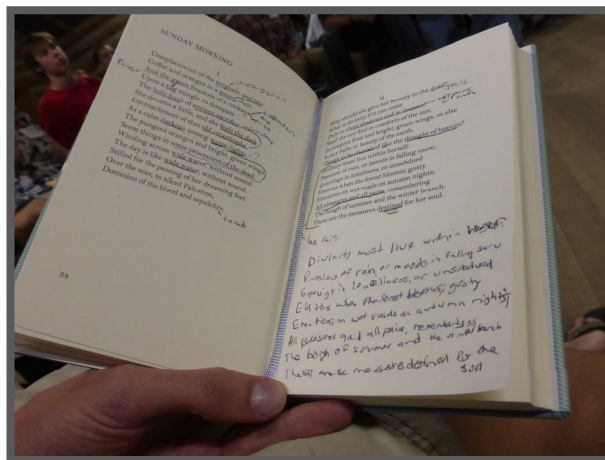 SUNDAY MORNING
I
Complacencies of the peignoir, and late
Coffee and oranges in a sunny chair,
And the green freedom of a cockatoo
Upon a rug mingle to dissipate
The holy hush of ancient sacrifice.
She dreams a little, and she feels the dark
Encroachment of that old catastrophe,
As a calm darkens among water-lights.
The pungent oranges and bright, green wings
Seem things in some procession of the dead,
Winding across wide water, without sound.
The day is like wide water, without sound,
Stilled for the passing of her dreaming feet
Over the seas, to silent Palestine,
Dominion of the blood and sepulchre.
tomb
34
II
Why should she give her bounty to the dead?
What is divinity if it can come
Only in silent shadows and in dreams?
Shall she not find in comforts of the sun,
In pungent fruit and bright, green wings, or else
In any balm or beauty of the earth,
Things to be cherished like the thought of heaven?
Divinity must live within herself:
Passions of rain, or moods in falling snow;
Grievings in loneliness, or unsubdued
Elations when the forest blooms; gusty
Emotions on wet roads on autumn nights;
All pleasures and all pains, remembering
The bough of summer and the winter branch.
These are the measures destined for her soul.
Divinity most live within herself:
Passions of rain, or moods in falling snow
Grievings in loneliness, or unsubdued
Elations when the forest blooms; gusty
Emotions on wet roads on autumn nights;
All pleasures and all pains, remembering
The bough of summer and the winter branch
These are the measures destined for the
soul